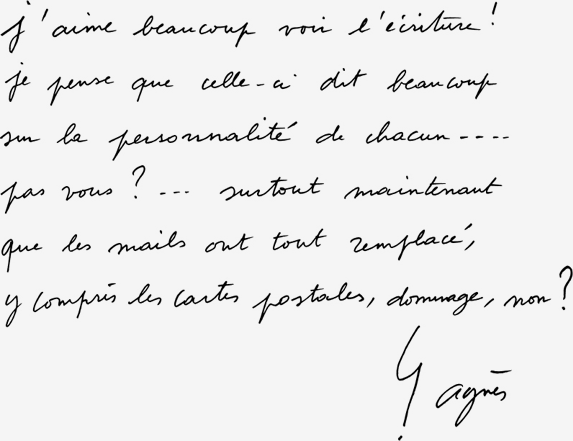 j'aime beaucoup voir l'écriture!
je pense que celle-ci dit beaucoup
sur la personnalité de chacun ----
pas vous? --- surtout maintenant
que les mails ont tout remplacé,
y compris les cartes postales, dommage, non?
agnès